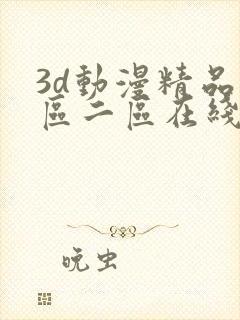 3d動漫精品
區二區在綫
晚虫